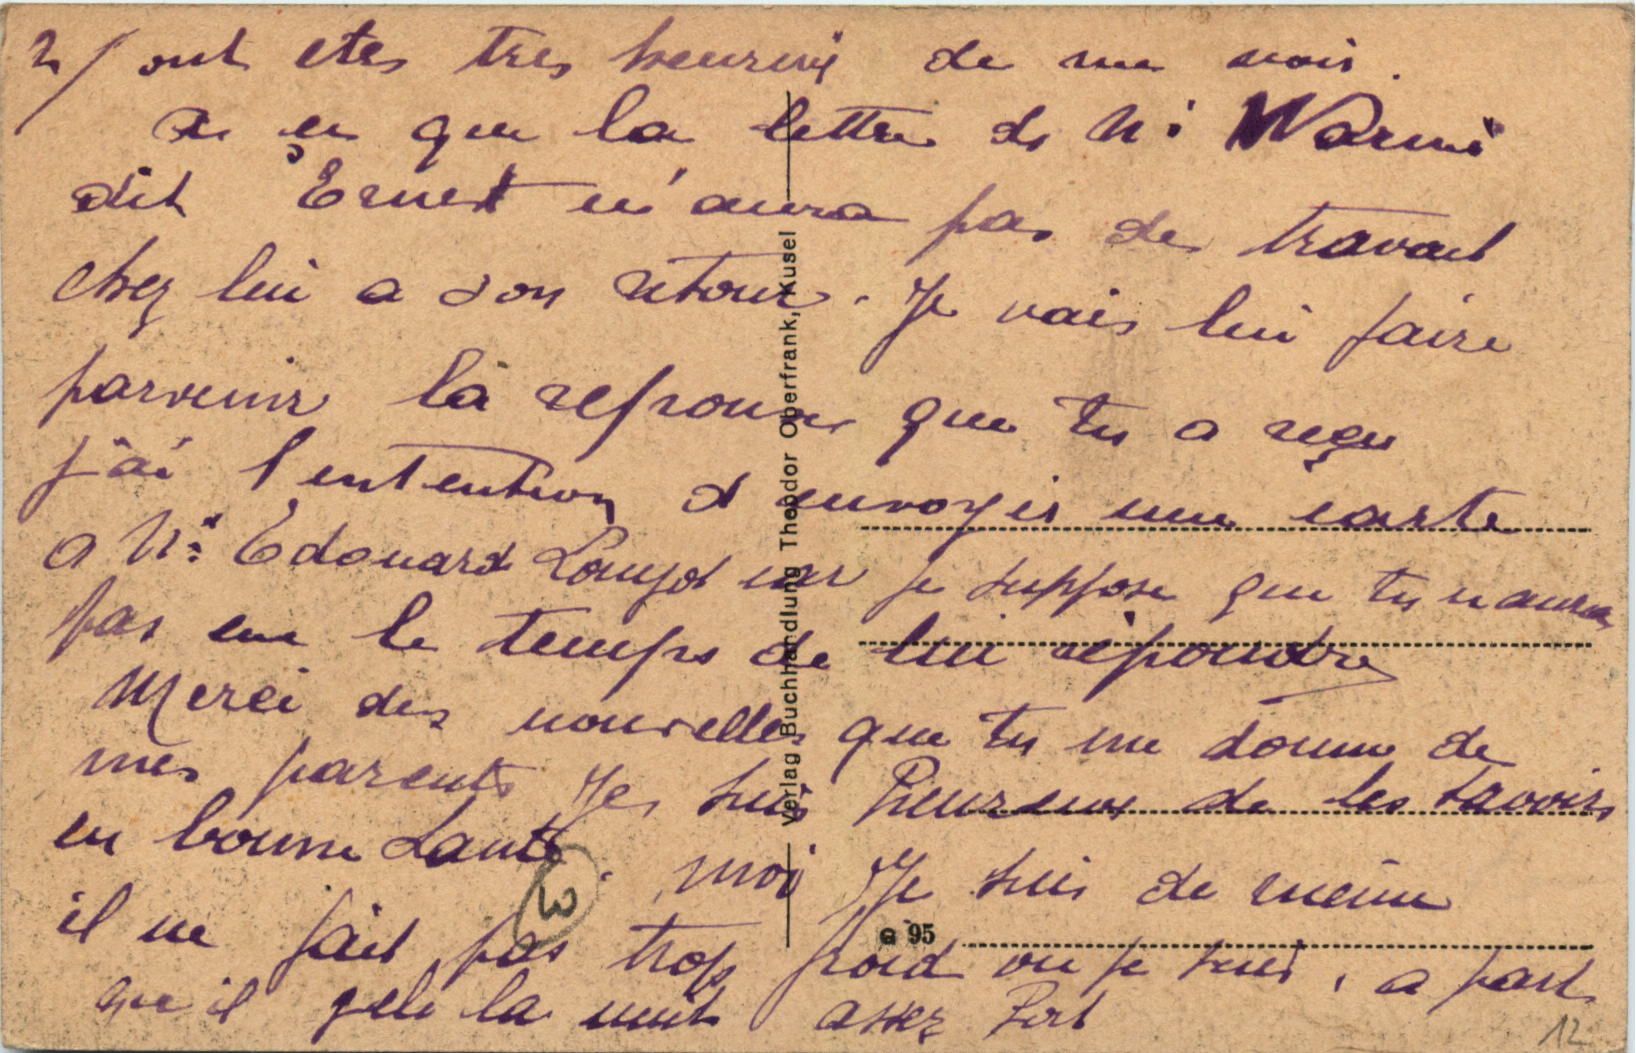 2/ ont etes tres heureux de me voir.
De ce que la lettre de Mr
dit Ernest n'aura pas de travail
chez lui a son retour. Je vais lui faire
parvenir la reponse que tu a reçu
j'ai l'entention d envoyer une carte
a Mr. Edouard car je suppose que tu n aura
pas eu le temps de lui répondre
Merci des nouvelles que tu me donne de
mes parents Je suis heureux de les savoirs
en bonne santé. moi Je suis de meme
il ne fait pas trop froid ou je suis, a part
que il gele la nuit assez fort
Verlag Buchhandlung Theodor Oberfrank, Kusel
e 95
3
12